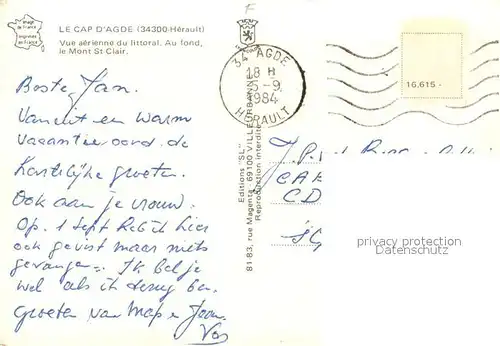 Image de France
LE CAP D'AGDE (34300-Hérault)
Vue aérienne du littoral. Au fond,
le Mont St Clair.
Beste Jan.
Vanuit een warm
vacantieoord de
hartelijke groeten.
Ook aan je vrouw.
Op 1 sept heb ik hier
ook gevist maar niets
gevangen. Ik bel je
wel als ik terug ben.
groeten van
34 AGDE
18 H
5-9
1984
HERAULT
Editions "SL"
81-83, rue Magenta, 69100 VILLEURBANNE
Reproduction interdite
16,615
privacy protection
Datenschutz